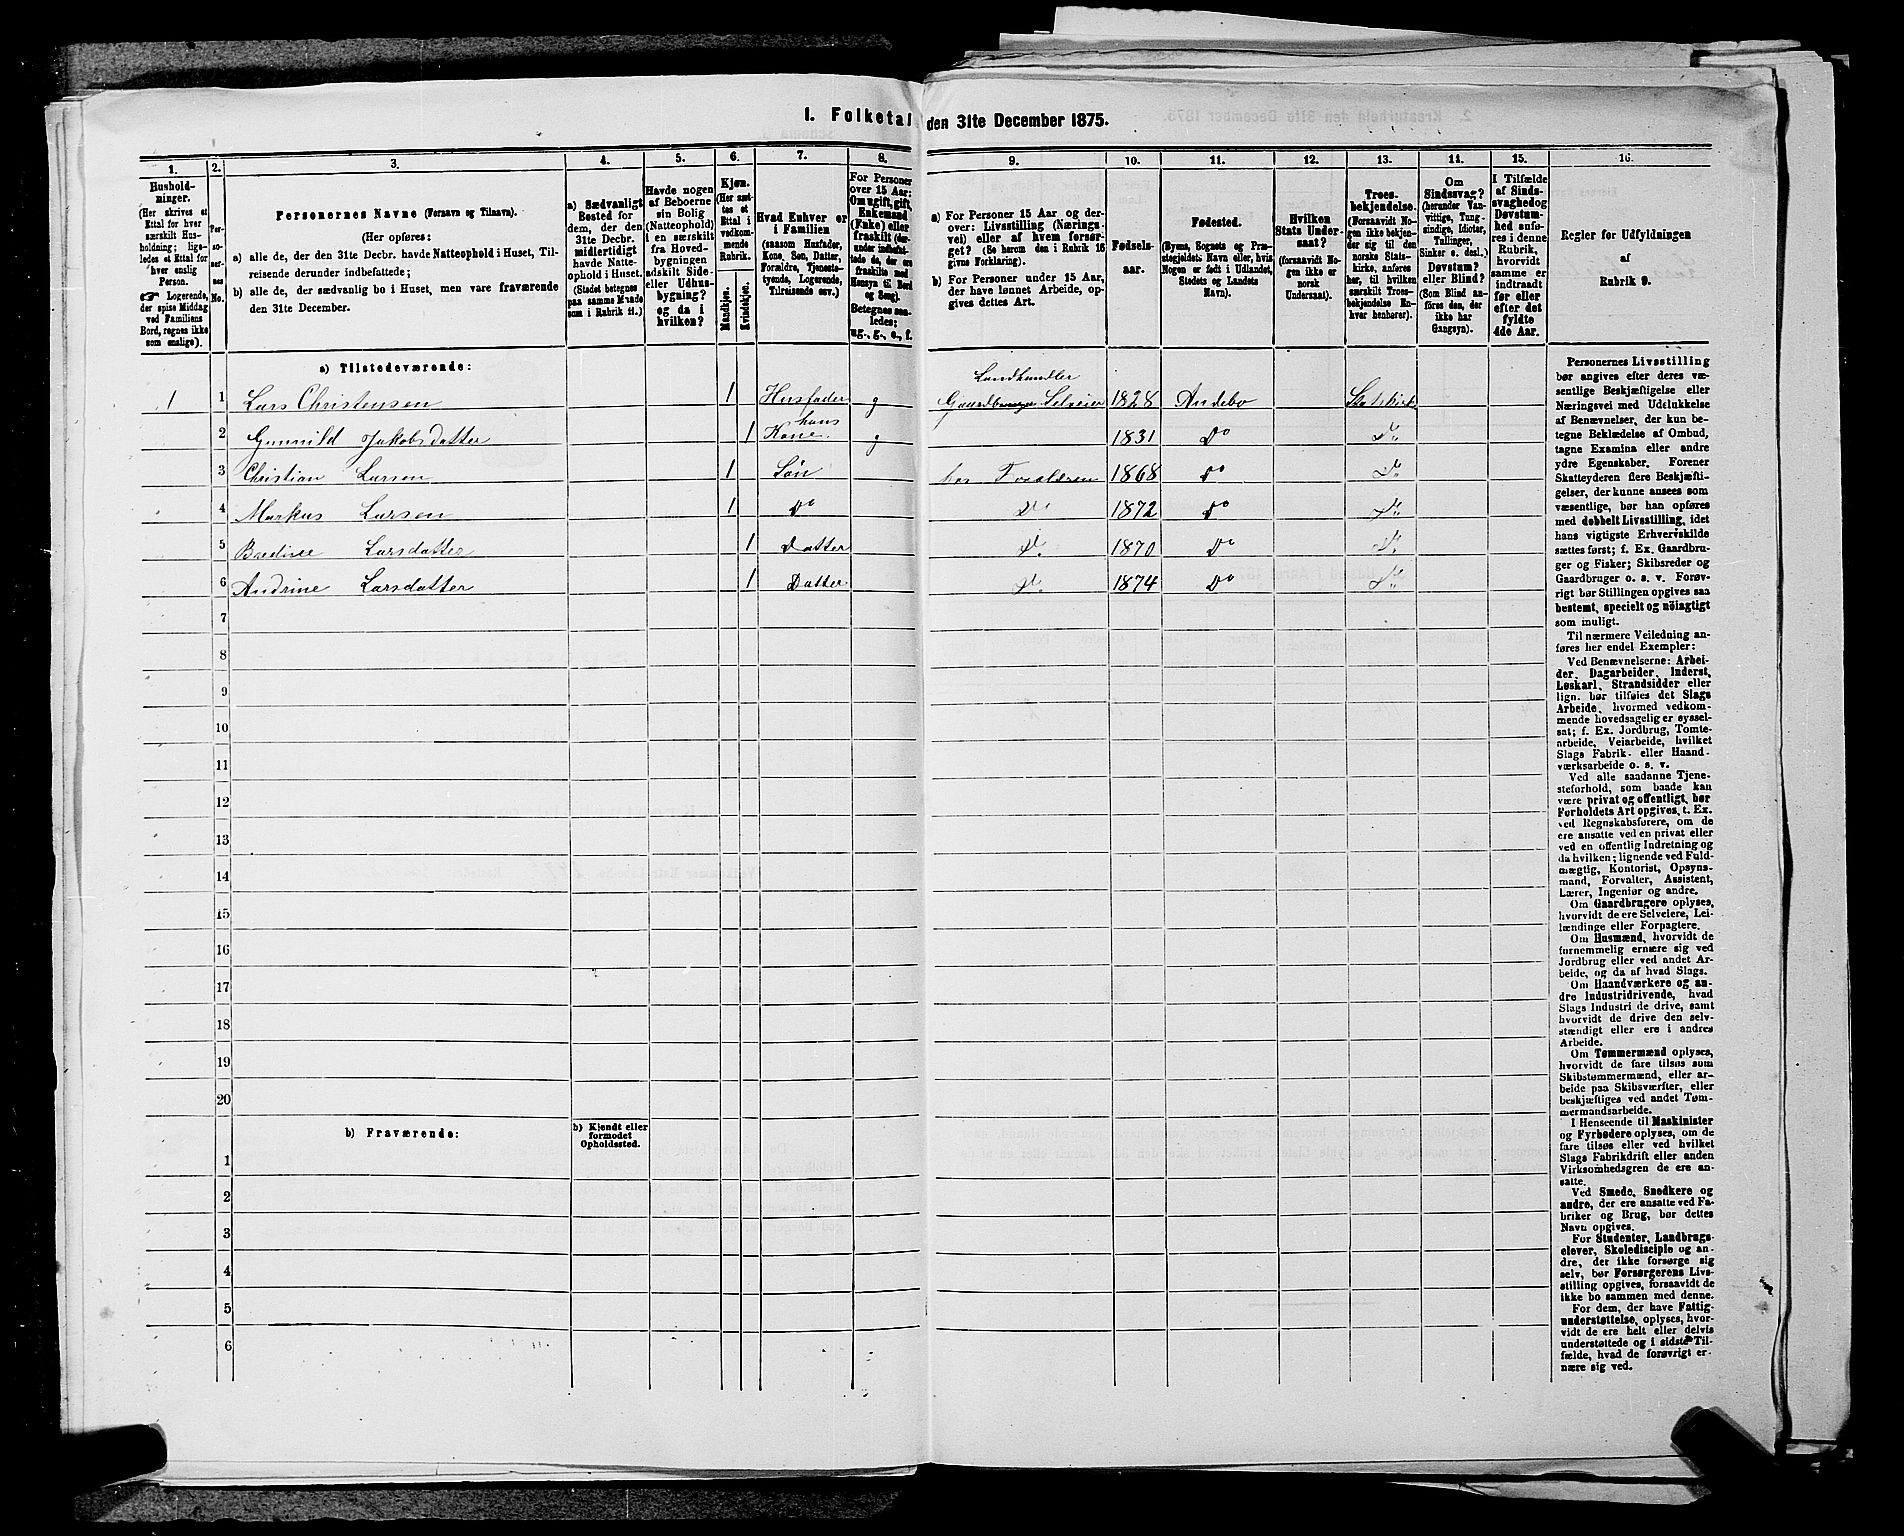 1. Folketal den 31te December 1875.
1. 2. 3. 4. 5. 6. 7. 8. 9. 10. 11. 12. 13. 14. 15. 16.
Hushold-
ninger.
(Her skrives et
Ettal for hver
særskilt Hus-
holdning; lige-
ledes et Ettal for
hver enslig
Person.
☞ Logerende,
der spise Middag
ved Familiens
Bord, regnes ikke
som enslige).
Per-
so-
ner-
nes
No.
Personernes Navne (Fornavn og Tilnavn).
(Her opføres:
a) alle de, der den 31te Decbr. havde Natteophold i Huset, Til-
reisende derunder indbefattede;
b) alle de, der sædvanlig bo i Huset, men vare fraværende
den 31te December.
a) Sædvanligt
Bosted for
dem, der den
31te Decbr.
midlertidigt
havde Natte-
ophold i Huset.
(Stedet betegnes
paa samme Maade
som i Rubrik 11.)
Havde nogen
af Beboerne
sin Bolig
(Natteophold)
i en særskilt
fra Hoved-
bygningen
adskilt Side-
eller Udhus-
bygning?
og da i
hvilken?
Kjøn.
(Her sæt-
tes et
Ettal i
vedkom-
mende
Rubrik.
Mandkjøn.
Kvindekjøn.
Hvad Enhver er
i Familien
(saasom Husfader,
Kone, Søn, Datter,
Forældre, Tjeneste-
tyende, Logerende,
Tilreisende osv.)
For Personer
over 15 Aar:
Om ugift, gift,
Enkemand
(Enke) eller
fraskilt (der-
under indbefat-
tede de, der ere
fraskilte med
Hensyn til Bord
og Seng).
Betegnes saa-
ledes:
ug., g., e., f.
a) For Personer 15 Aar og der-
over: Livsstilling (Nærings-
vei) eller af hvem forsør-
get? (Se herom den i Rubrik 16
givne Forklaring).
b) For Personer under 15 Aar,
der have lønnet Arbeide, op-
gives dettes Art.
Fødsels-
aar.
Fødested.
(Byens, Sognets og Præ-
stegjeldets Navn eller, hvis
Nogen er født i Udlandet,
Stedets og Landets
Navn).
Hvilken
Stats Under-
saat?
(forsaavidt No-
gen ikke er
norsk
Undersaat).
Troes-
bekjendelse.
(Forsaavidt No-
gen ikke bekjen-
der sig til den
norske Stats-
kirke, anføres
her, til hvilken
særskilt Troes-
bekjendelse En-
hver henhører).
Om
Sindssvag?
(herunder Van-
vittige, Tung-
sindige, Idioter,
Tullinger,
Sinker o. desl.)
Døvstum?
eller Blind?
(Som Blind an-
føres den, der
ikke har
Gangsyn).
I Tilfælde
af Sinds-
svaghed og
Døvstum-
hed anføres
i denne
Rubrik,
hvorvidt
samme er
indtraadt
før eller
efter det
fyldte
4de Aar.
Regler for Udfyldningen
af
Rubrik 9.
a) Tilstedeværende:
Landhandler
1 1 Lars Christensen 1 Husfader g Gaardbruger Selveier 1828 Andebo Statskirk
hans
2 Gunnild Jakobsdatter 1 Kone g 1831 Do Do
3 Christian Larsen 1 Søn hos Forældren 1868 Do Do
4 Markus Larsen 1 Do Do 1872 Do Do
5 Bredine Larsdatter 1 Datter Do 1870 Do Do
6 Andrine Larsdatter 1 Datter Do 1874 Do Do
7
8
9
10
11
12
13
14
15
16
17
18
19
20
b) Fraværende:
b) Kjendt eller
formodet
Opholdssted.
1
2
3
4
5
6
Personernes Livsstilling
bør angives efter deres væ-
sentlige Beskjæftigelse eller
Næringsvei med Udelukkelse
af Benævnelser, der kun be-
tegne Beklædelse af Ombud,
tagne Examina eller andre
ydre Egenskaber. Forener
Skatteyderen flere Beskjæfti-
gelser, der kunne ansees som
væsentlige, bør han opføres
med dobbelt Livsstilling, idet
hans vigtigste Erhvervskilde
sættes først; f. Ex. Gaardbru-
ger og Fisker; Skibsreder og
Gaardbruger o. s. v. Forøv-
rigt bør Stillingen opgives saa
bestemt, specielt og nöiagtigt
som muligt.
Til nærmere Veiledning an-
føres her endel Exempler:
Ved Benævnelserne: Arbei-
der, Dagarbeider, Inderst,
Løskarl, Strandsidder eller
lign. bør tilføies det Slags
Arbeide, hvormed vedkom-
mende hovedsagelig er syssel-
sat; f. Ex. Jordbrug, Tomte-
arbeide, Veiarbeide, hvilket
Slags Fabrik- eller Haand-
værksarbeide o. s. v.
Ved alle saadanne Tjene-
steforhold, som baade kan
være privat og offentligt, bør
Forholdets Art opgives, t. Ex.
ved Regnskabsførere, om de
ere ansatte ved en privat eller
ved en offentlig Indretning og
da hvilken; lignende ved Fuld-
mægtig, Kontorist, Opsyns-
mand, Forvalter, Assistent,
Lærer, Ingeniør og andre.
Om Gaardbrugere oplyses,
hvorvidt de ere Selveiere, Lei-
lændinge eller Forpagtere.
Om Husmænd, hvorvidt de
fornemmelig ernære sig ved
Jordbrug eller ved andet Ar-
beide, og da af hvad Slags.
Om Haandværkere og an-
dre Industridrivende, hvad
Slags Industri de drive, samt
hvorvidt de drive den selv-
stændigt eller ere i andres
Arbeide.
Om Tømmermænd oplyses,
hvorvidt de fare tilsøs som
Skibstømmermænd, eller ar-
beide paa Skibsværfter, eller
beskjæftiges ved andet Tøm-
mermandsarbeide.
I Henseende til Maskinister
og Fyrbødere oplyses, om de
fare tilsøs eller ved hvilket
Slags Fabrikdrift eller anden
Virksomhedsgren de ere an-
satte.
Ved Smede, Snedkere og
andre, der ere ansatte ved Fa-
briker og Brug, bør dettes
Navn opgives.
For Studenter, Landbrugs-
elever, Skoledisciple og an-
dre, der ikke forsørge sig
selv, bør Forsørgerens Livs-
stilling opgives, forsaavidt de
ikke bo sammen med denne.
For dem, der have Fattig-
understøttelse, oplyses, hvor-
vidt de ere helt eller delvis
understøttede og i sidste Til-
fælde, hvad de forøvrigt er-
nære sig ved.